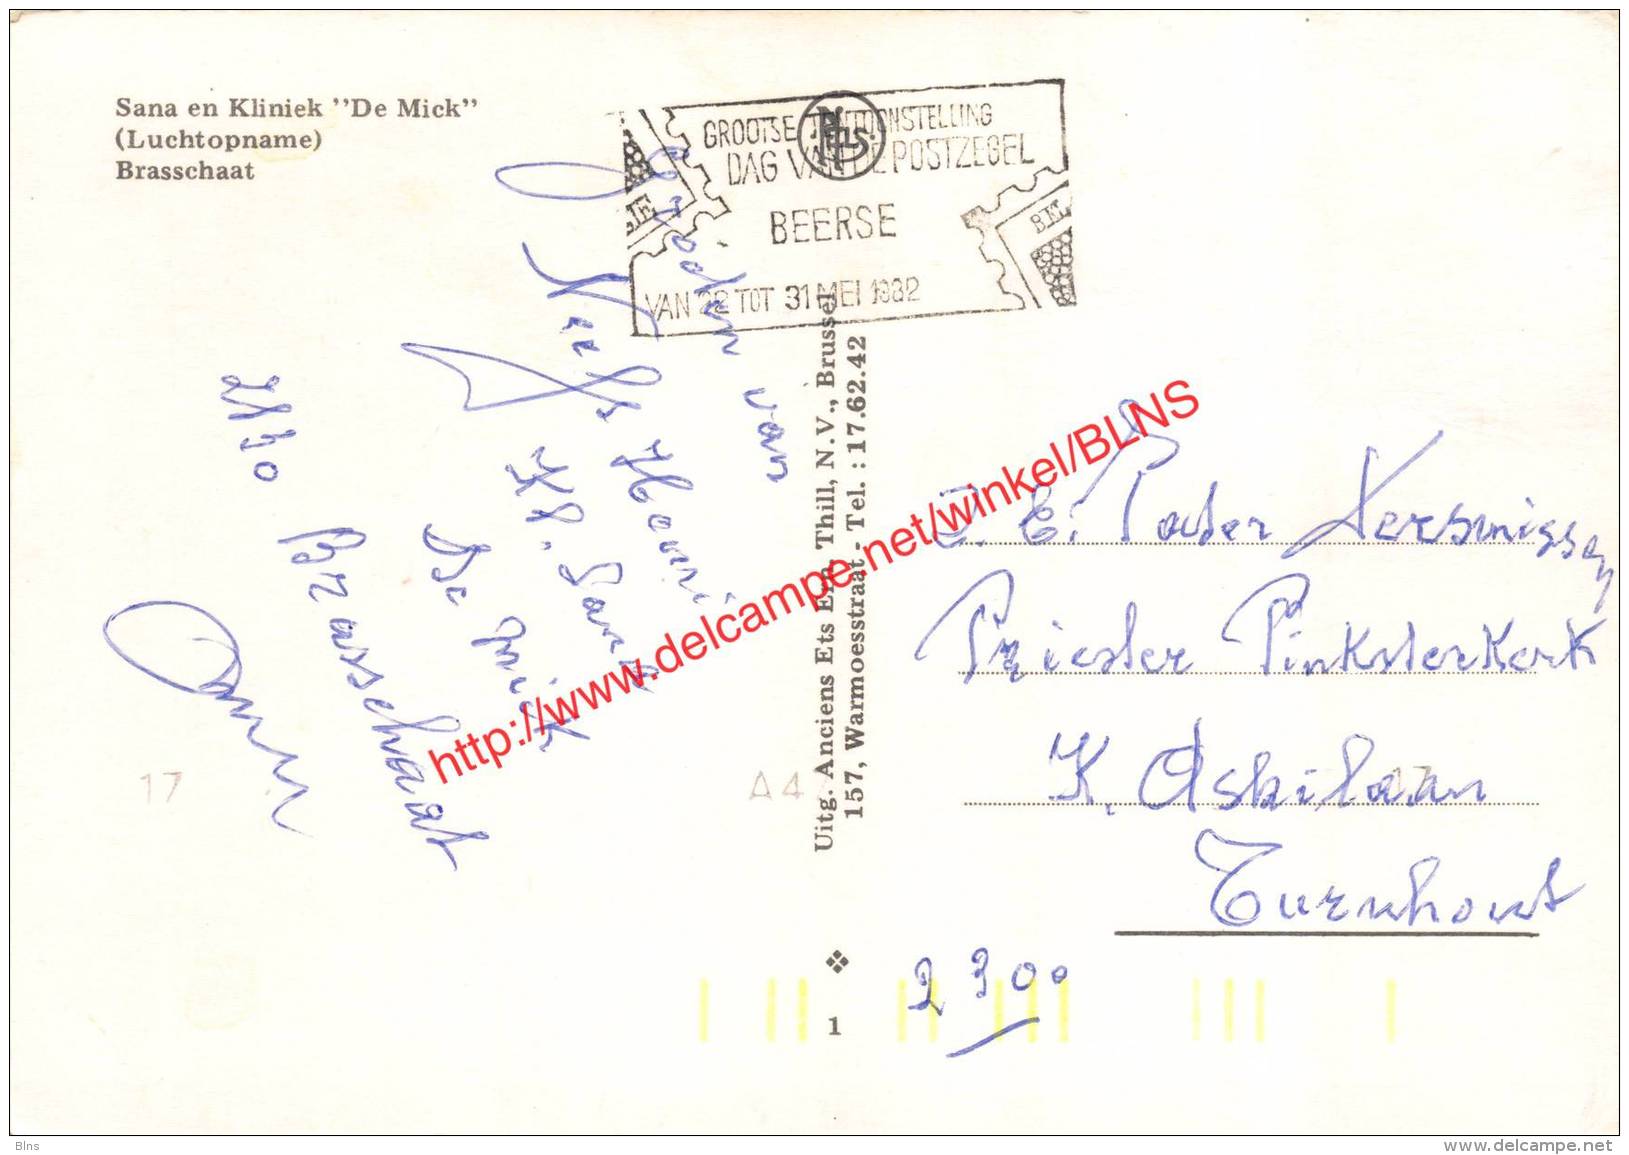 Sana en Kliniek "De Mick"
(Luchtopname)
Brasschaat
GROOTSE TENTOONSTELLING
DAG VAN DE POSTZEGEL
BEERSE
VAN 22 TOT 31 MEI 1982
NELS
BEL
van
Neefs Henri
Kl. Sana
De Mick
2130 Brasschaat
Uitg. Anciens Ets Ern. Thill, N.V., Brussel
157, Warmoesstraat - Tel. : 17.62.42
E. Pater Kersmissen
Priester Pinksterkerk
K. Asbilaan
Turnhout
2300
17
A4
17
1
http://www.delcampe.net/winkel/BLNS
Blns
www.delcampe.net